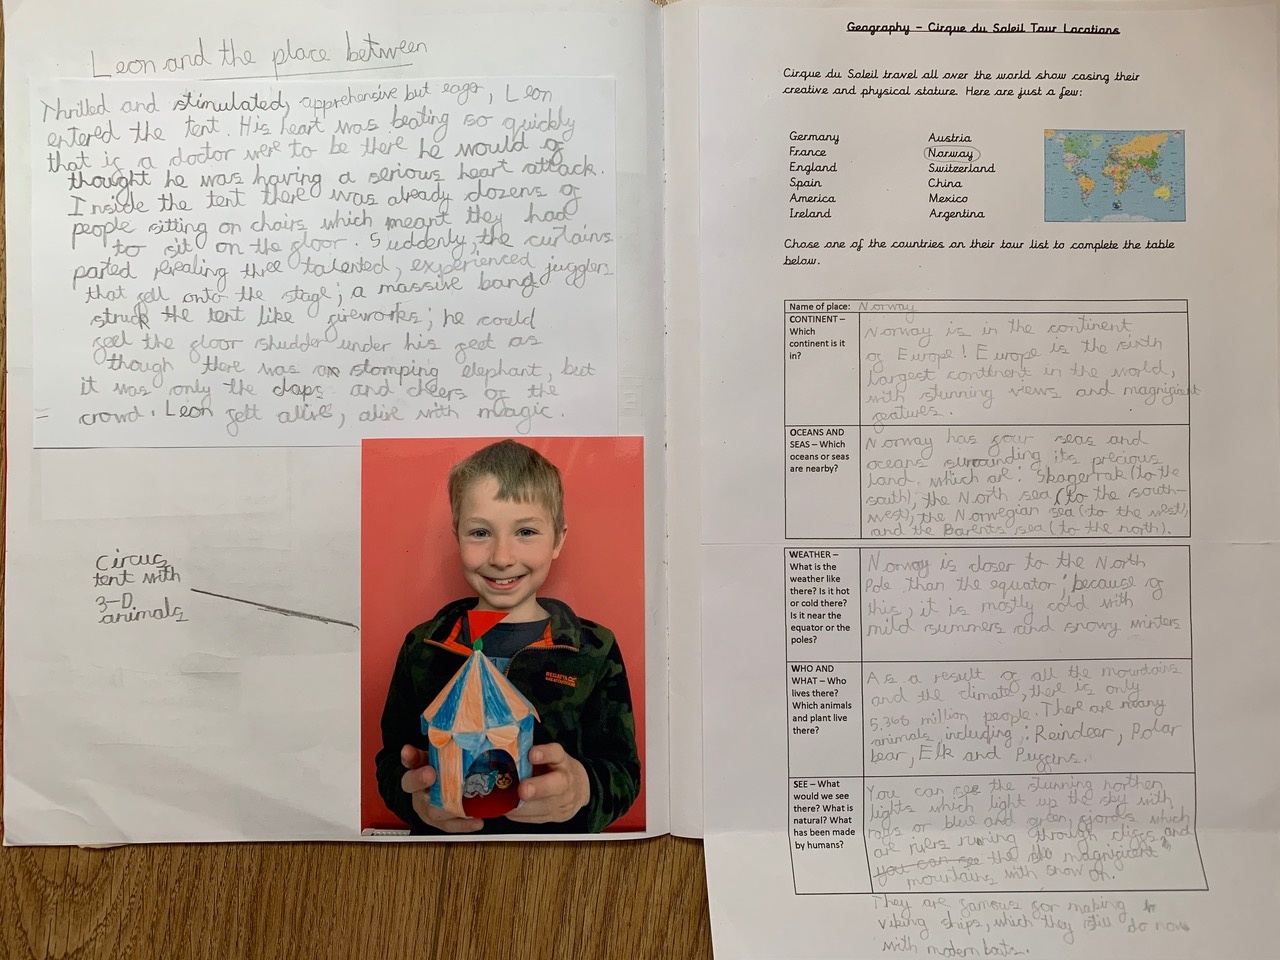 Leon and the place between
Thrilled and stimulated, apprehensive but eager, Leon
entered the tent. His heart was beating so quickly
that if a doctor were to be there he would of
thought he was having a serious heart attack.
Inside the tent there was already dozens of
people sitting on chairs which meant they had
to sit on the floor. Suddenly, the curtains
parted revealing three talented, experienced jugglers
that fell onto the stage; a massive bang
struck the tent like fireworks; he could
feel the floor shudder under his feet as
though there was an stomping elephant, but
it was only the claps and cheers of the
crowd. Leon felt alive, alive with magic.
Circus
tent with
3-D
animals
REGATTA
GREAT OUTDOORS
Geography – Cirque du Soleil Tour Locations
Cirque du Soleil travel all over the world show casing their
creative and physical stature. Here are just a few:
Germany
France
England
Spain
America
Ireland
Austria
Norway
Switzerland
China
Mexico
Argentina
Chose one of the countries on their tour list to complete the table
below.
Name of place: Norway
CONTINENT –
Which
continent is it
in?
Norway is in the continent
of Europe! Europe is the sixth
largest continent in the world,
with stunning views and magnificant
features.
OCEANS AND
SEAS – Which
oceans or seas
are nearby?
Norway has four seas and
oceans surrounding its precious
land. which are: Skagerrak (to the
south), the North sea (to the south-
west), the Norwegian sea (to the west)
and the Barents sea (to the north).
WEATHER –
What is the
weather like
there? Is it hot
or cold there?
Is it near the
equator or the
poles?
Norway is closer to the North
Pole than the equator; because of
this, it is mostly cold with
mild summers and snowy winters
WHO AND
WHAT – Who
lives there?
Which animals
and plant live
there?
As a result of all the mountains
and the climate, there is only
5.368 million people. There are many
animals including: Reindeer, Polar
bear, Elk and Puffins.
SEE – What
would we see
there? What is
natural? What
has been made
by humans?
You can see the stunning northen
lights which light up the sky with
rays or blue and green, fjords which
are rivers running through cliffs, and
you can see the magnificent
mountains with snow on.
They are famous for making
viking ships, which they still do now
with modern boats.